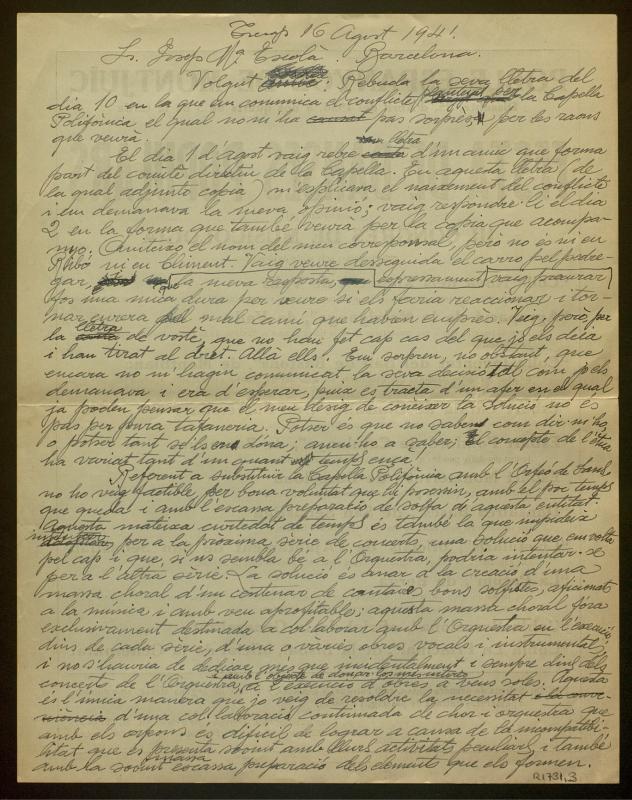 Tremp 16 Agost 1941.
Sr. Josep Mª Escolà. Barcelona.
Volgut : Rebuda la seva lletra del
dia 10 en la que em comunica el conflicte la Capella
Polifònica el qual no m'ha causat pas sorprès, per les raons
que veurà.
El dia 1 d'Agost vaig rebre lletra d'un amic que forma
part del comitè directiu de la Capella. En aquesta lletra (de
la qual adjunto copia) m'explicava el naixement del conflicte
i em demanava la meva opinió; vaig respondre-li el dia
2 en la forma que també veurà per la copia que acompa-
nyo. Omiteixo el nom del meu corresponsal, però no es ni en
Ribó ni en Climent. Vaig veure desseguida el carro pel pedre-
gar, la meva resposta, expressament vaig procurar
fos una mica dura per veure si els faria reaccionar i tor-
nar enrera del mal camí que havien emprès. Veig, però, per
la lletra de vostè, que no han fet cap cas del que jo els deia
i han tirat al dret. Allà ells. Em sorpren, no obstant, que
encara no m'hagin comunicat la seva decisió tal com jo els
demanava i era d'esperar, puix es tracta d'un afer en el qual
ja poden pensar que el meu desig de coneixer la solució no és
pas per pura tafaneria. Potser és que no saben com dir-m'ho,
o potser tant se'ls en dona; aneu-ho a saber; el concepte de l'ètica
ha variat tant d'un quant temps ençà.
Referent a substituir la Capella Polifònica amb l'Orfeó de Sans,
no ho veig factible, per bona voluntat que hi posessin, amb el poc temps
que queda i amb l'escassa preparació de solfa di aquesta entitat.
Aquesta mateixa curtedat de temps és també la que impideix
per a la pròxima sèrie de concerts, una solució que em volta
pel cap i que, si us sembla bé a l'Orquestra, podria intentar-se
per a l'altra sèrie. La solució es anar a la creació d'una
massa choral d'un centenar de cantaires bons solfistes, aficionats
a la música i amb veu aprofitable; aquesta massa choral fora
exclusivament destinada a col·laborar amb l'Orquestra en l'execució
dins de cada sèrie, d'una o varies obres vocals i instrumental,
i no s'hauria de dedicar, més que incidentalment i sempre dins dels
concerts de l'Orquestra, i amb l'objecte de donar-los més interès, a l'execució d'obres a veus soles. Aquesta
és l'única manera que jo veig de resoldre la necessitat
d'una col·laboració continuada de chor i orquestra que
amb els orfeons es difícil de lograr a causa de la incompatibi-
litat que es presenta sovint amb llurs activitats peculiars i també
amb la sovint massa escassa preparació dels elements que els formen.
R.1731,3